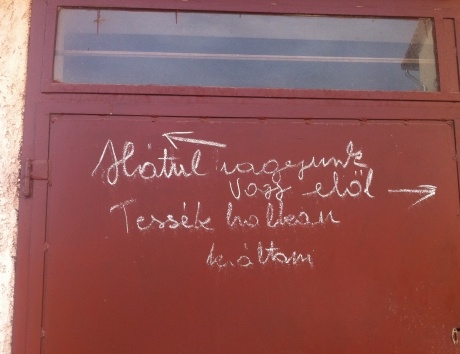 Hátul vagyunk
vagy elől
Tessék halkan
kiáltani